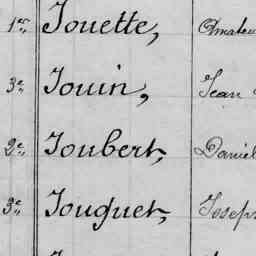 1er Jouette, Amateu
3e Jouin, Jean
2e Joubert, Daniel
3e Jouquet, Joseph